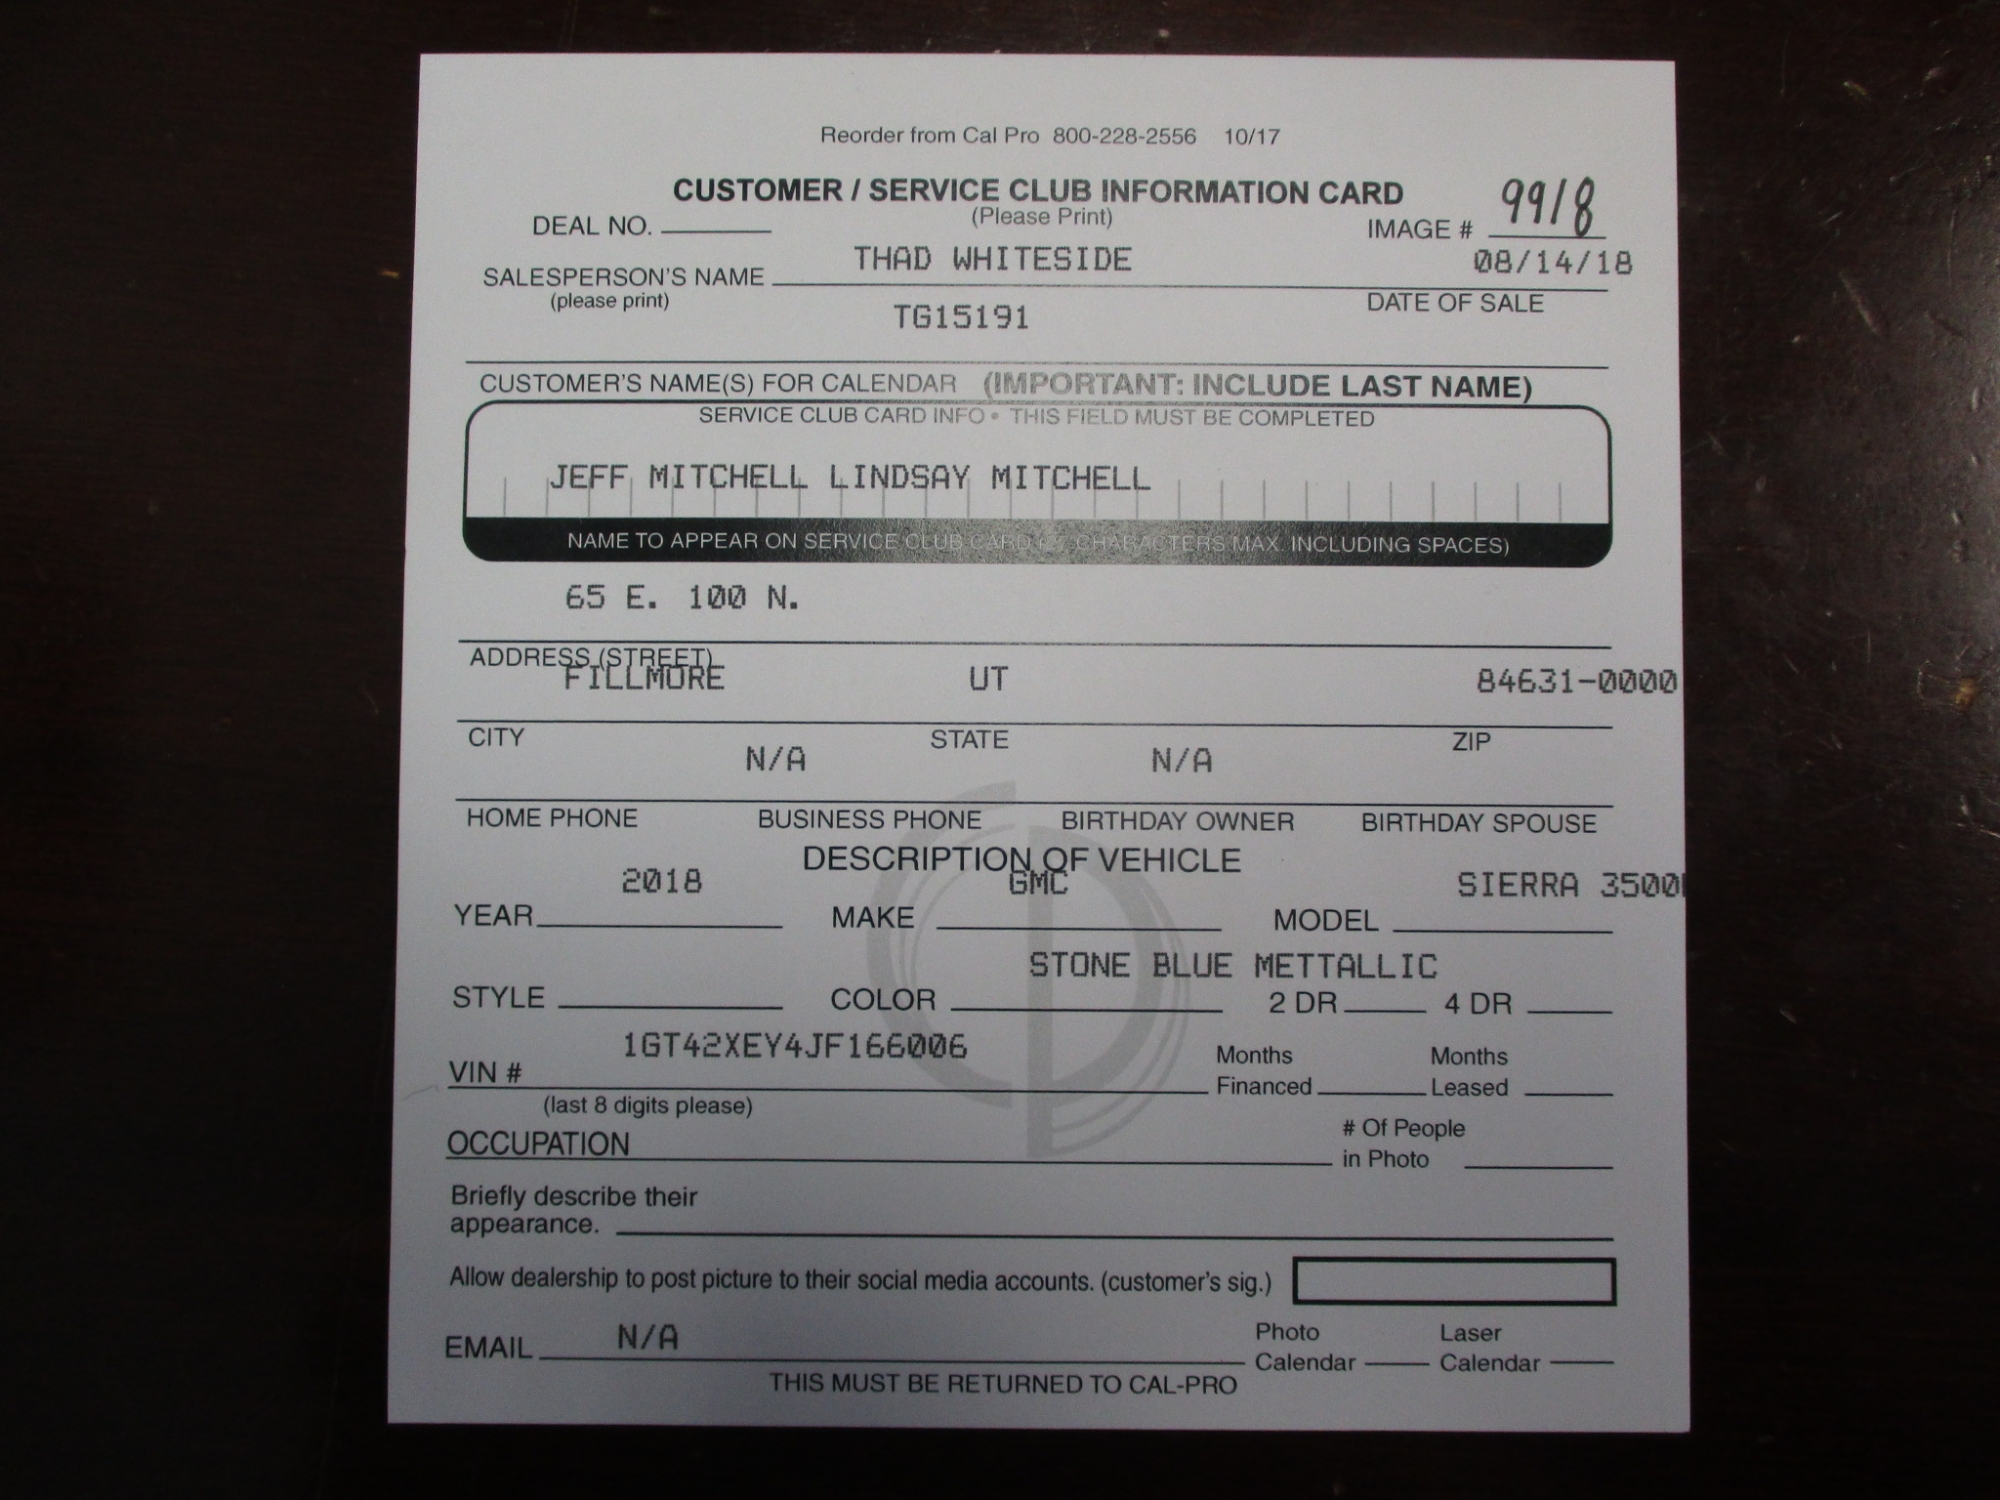 Reorder from Cal Pro 800-228-2556 10/17
CUSTOMER / SERVICE CLUB INFORMATION CARD
(Please Print)
DEAL NO.
IMAGE # 9918
THAD WHITESIDE
08/14/18
SALESPERSON'S NAME
(please print)
DATE OF SALE
TG15191
CUSTOMER'S NAME(S) FOR CALENDAR (IMPORTANT: INCLUDE LAST NAME)
SERVICE CLUB CARD INFO • THIS FIELD MUST BE COMPLETED
JEFF MITCHELL LINDSAY MITCHELL
NAME TO APPEAR ON SERVICE CLUB CARD CHARACTERS MAX. INCLUDING SPACES)
65 E. 100 N.
ADDRESS (STREET)
FILLMORE UT 84631-0000
CITY STATE ZIP
N/A N/A
HOME PHONE BUSINESS PHONE BIRTHDAY OWNER BIRTHDAY SPOUSE
DESCRIPTION OF VEHICLE
2018 GMC SIERRA 3500
YEAR MAKE MODEL
STONE BLUE METTALLIC
STYLE COLOR 2 DR 4 DR
1GT42XEY4JF166006
VIN #
(last 8 digits please)
Months Financed
Months Leased
OCCUPATION
# Of People
in Photo
Briefly describe their
appearance.
Allow dealership to post picture to their social media accounts. (customer's sig.)
EMAIL N/A
Photo Calendar
Laser Calendar
THIS MUST BE RETURNED TO CAL-PRO